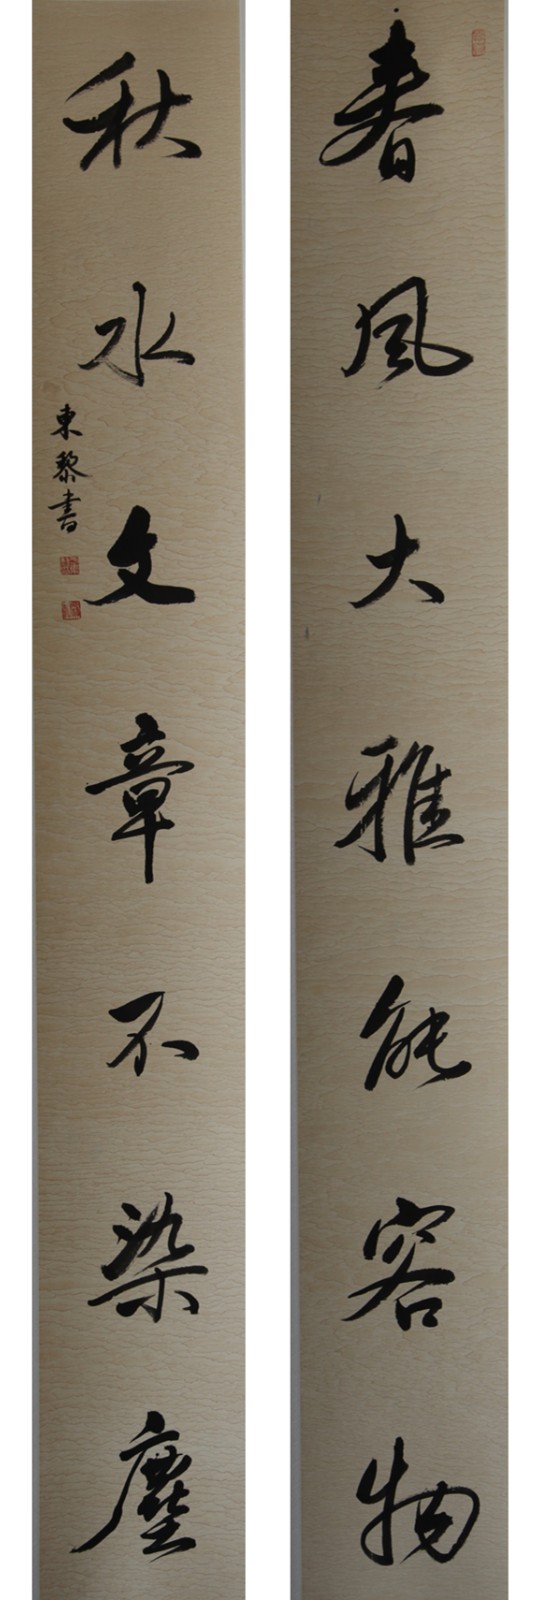 春風大雅能容物
秋水文章不染塵
東黎書